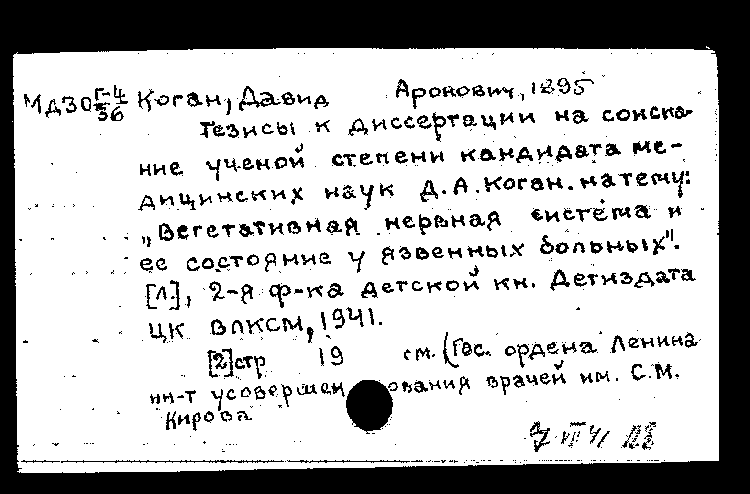 МД30 Г-4/36 Коган, Давид Аронович, 1895
Тезисы к диссертации на соиска-
ние ученой степени кандидата ме-
дицинских наук Д.А.Коган. на тему:
„Вегетативная нервная система и
ее состояние у язвенных больных".
[Л], 2-я ф-ка детской кн. Детиздата
ЦК ВЛКСМ, 1941.
[2]стр 19 см. (Гос. ордена Ленина
ин-т усовершенствования врачей им. С.М.
Кирова
7 VII 41